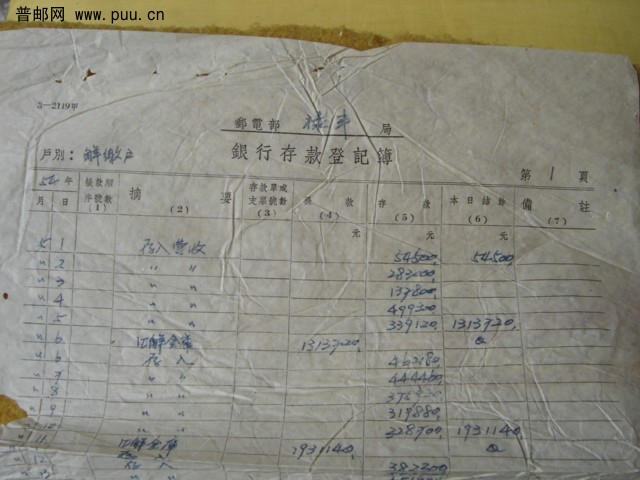 普邮网 www.puu.cn
3-2119甲
郵電部 局
銀行存款登記簿
戶別：解繳户 第 1 頁
54年 摘要 存款單或支票號數 存款 本日結餘 備註
月 日 (1) (2) (3) (4) (5) (6) (7)
元 元 元
1 存入营收 54500. 54500.
〃 2 〃 〃 283000
〃 3 〃 〃 137800.
〃 4 〃 〃 499300
〃 5 〃 〃 339120. 1313720.
〃 6 汇解金库 1313720. 0
〃 6 存入 452180
〃 7 〃 〃 444400
〃 8 〃 〃
〃 9 〃 〃 319880.
〃 10 〃 〃 328700. 1931140.
〃 11 汇解金库 1931140. 0
存入 382200
〃 12